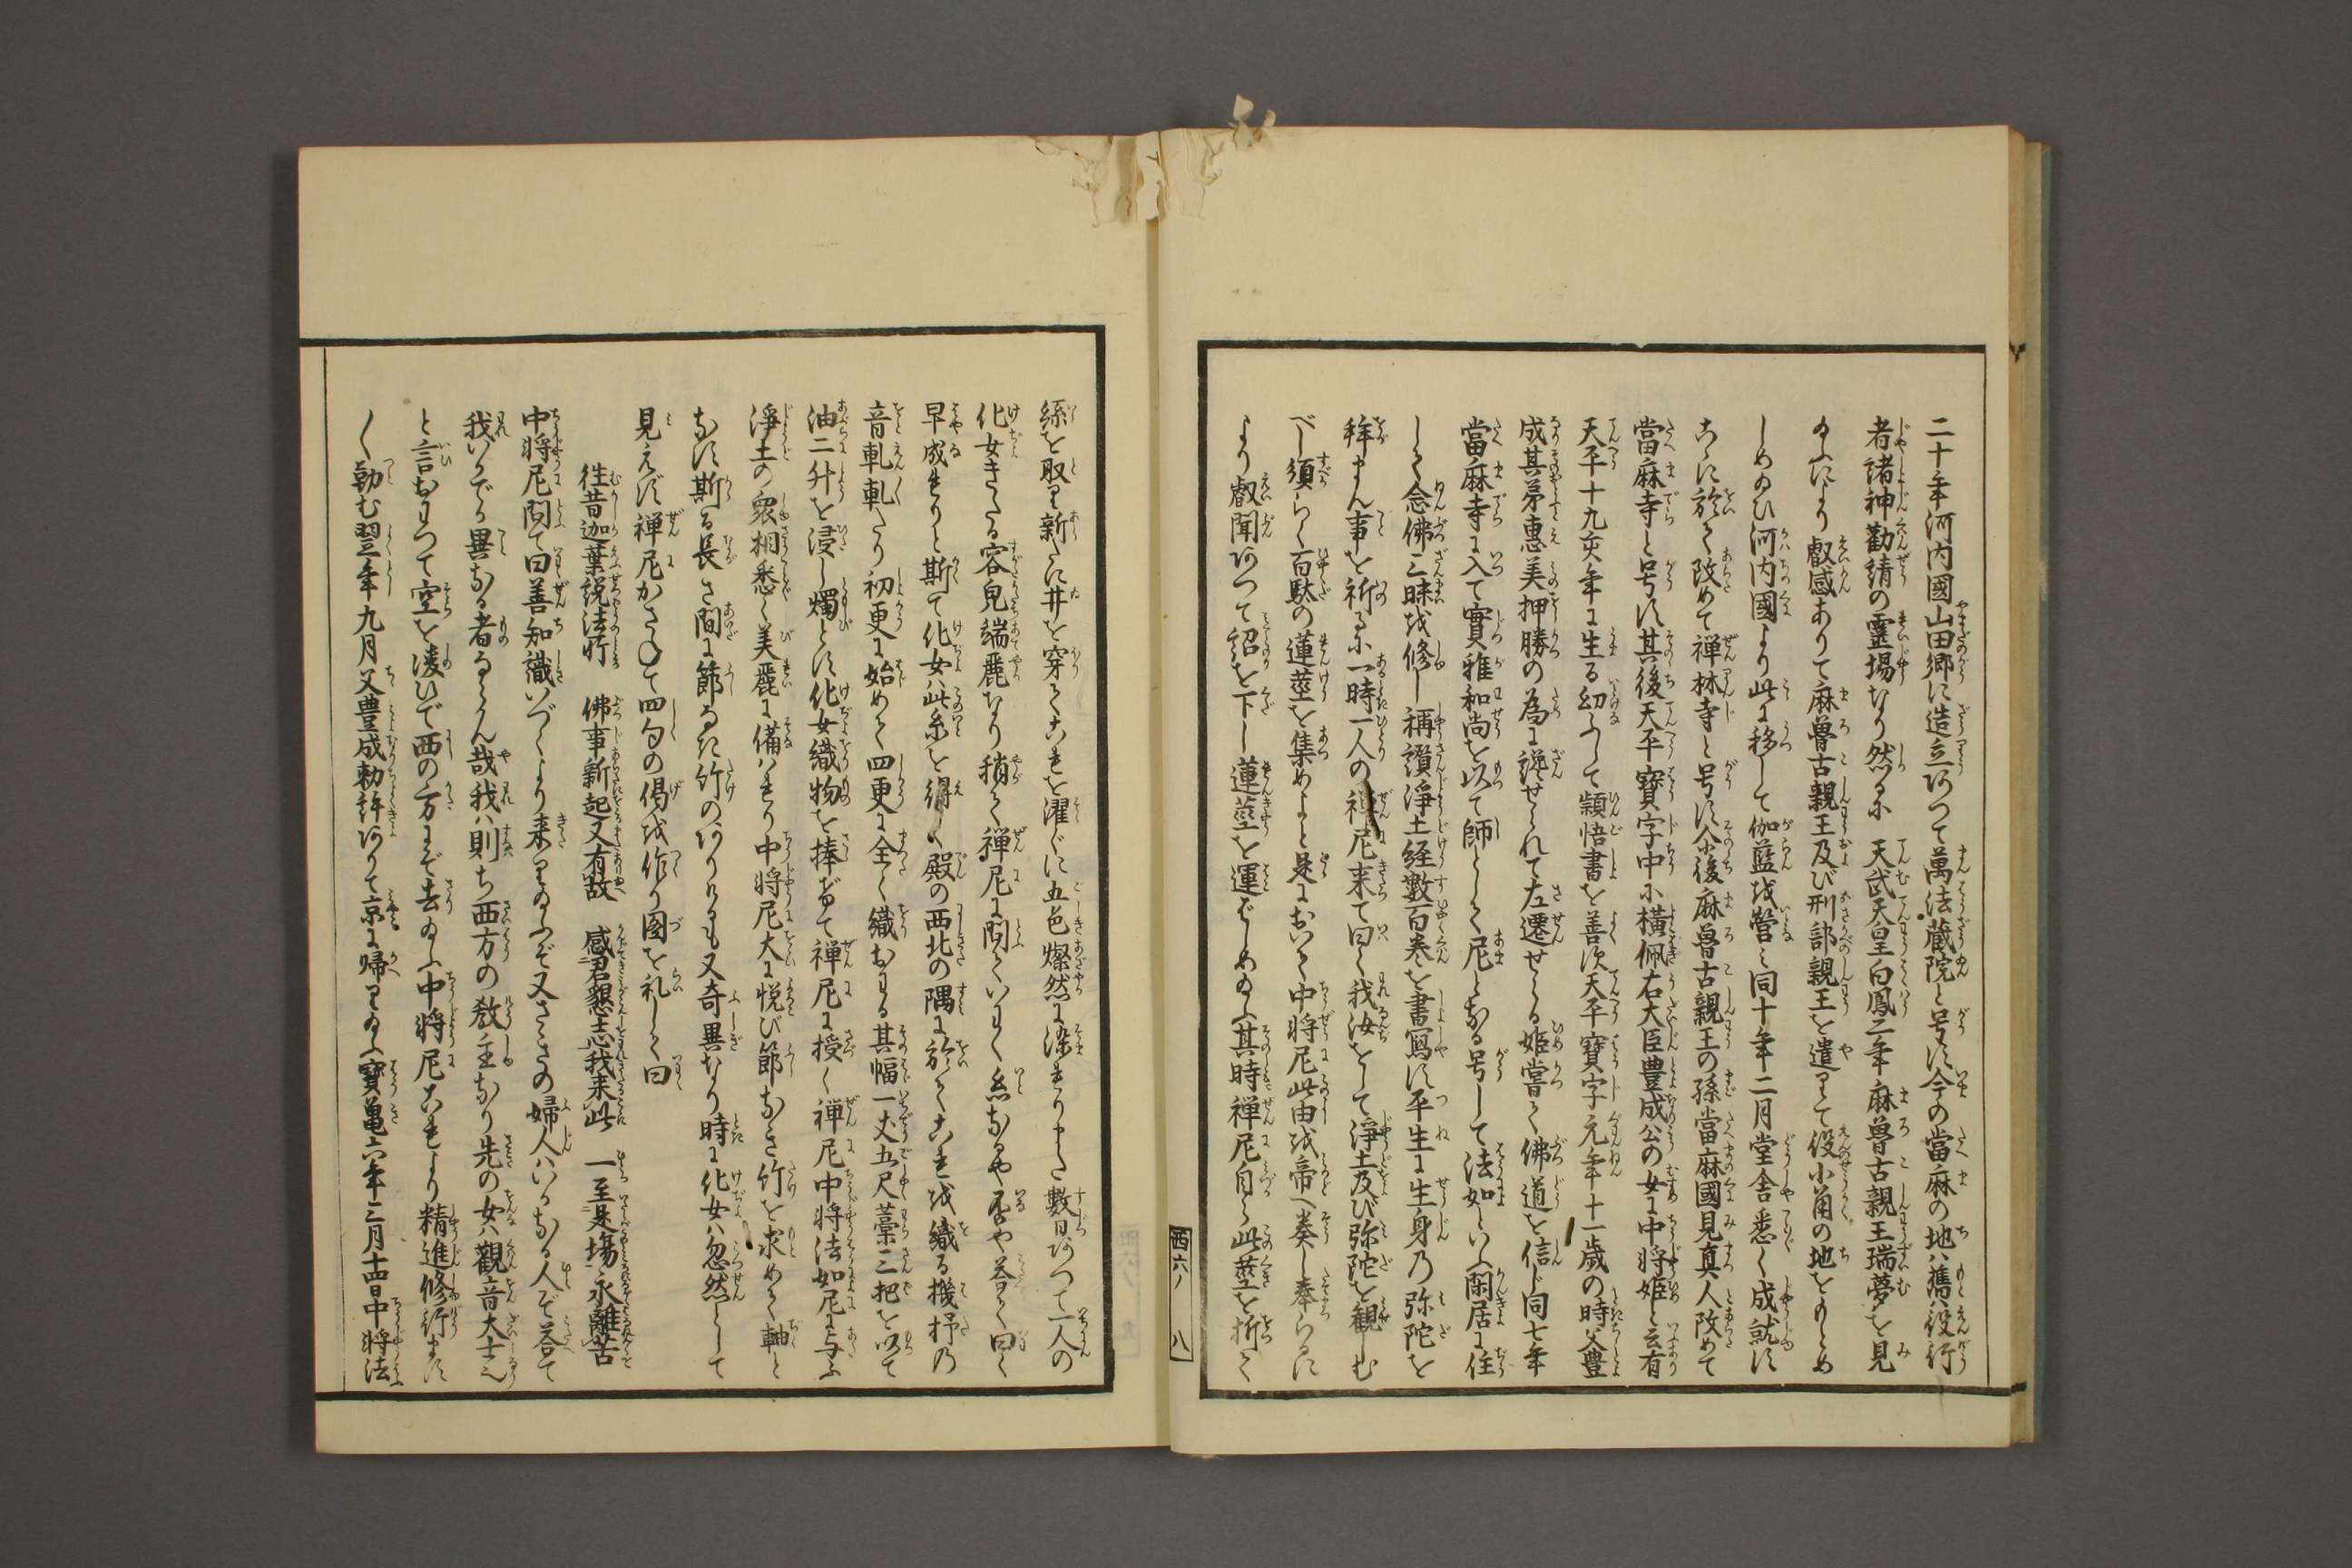 二十年河内國山田郷に造立ありて萬法蔵院と号す今の當麻の地ハ舊役行
者諸神勸請の靈場なり然るに　天武天皇白鳳二年麻曽古親王瑞夢を見
給ふにより叡感ありて麻曽古親王及び刑部親王を遣りて役小角の地をもとめ
しめ給ひ河内國より此に移して伽藍を營ミ同十年二月堂舎悉く成就す
こゝに於く改めて禅林寺と号す其後麻曽古親王の孫當麻國見真人改めて
當麻寺と号す其後天平寳字中に横佩右大臣豊成公の女に中将姫と云有
天平十九亥年に生る幼ふして顕悟書を善す天平寳字元年十一歳の時父豊
成其弟惠美押勝の為に讒せられて左遷せらる姫嘗て佛道を信ず同七年
當麻寺に入て實雅和尚を以て師として尼となる号して法如といふ閑居に住
して念佛三昧を修し稱讃淨土経數百巻を書寫す平生に生身乃弥陀を
拜まん事を祈るに一時一人の禅尼来て曰く我汝をして淨土及び弥陀を観しむ
べし須らく百駄の蓮莖を集めよと是において中将尼此由を帝へ奏し奉らるに
より叡聞ありて詔を下し蓮莖を運ばしめ給ふ其時禅尼自ら此莖を折て
西六ノ　八
絲を取り新に井を穿てこれを濯ぐに五色燦然に染れり又數日ありて一人の
化女きたる容皃端麗なり稍て禅尼に問ていわく糸なるや否や答て曰く
早成れりと斯て化女ハ此糸を得て殿の西北の隅に於てこれを織る機杼乃
音軋軋たり初更に始めて四更に全く織おわる其幅一丈五尺藁三把を以て
油二升を浸し燭とす化女織物を捧げて禅尼に授く禅尼中将法如尼に与ふ
淨土の衆相悉く美麗に備ハれり中将尼大に悦び節なき竹を求めて軸と
なす斯る長さ間に節なき竹のありけるも又奇異なり時に化女ハ忽然として
見えず禅尼かさねて四句の偈を作り圖を礼して曰
往昔迦葉説法所　佛事新起又有故　感君懇志我来此　一至是場永離苦
中将尼問て曰善知識いづくより来り給ふぞ又さきの婦人ハいかなる人ぞ答て
我いかでか異なる者ならん哉我ハ則ち西方の教主なり先の女ハ觀音大士也
と言おわつて空を凌いで西の方まで去給ふ中将尼これより精進修行ます
〱勤む翌年九月父豊成勅許ありて京に帰り給ふ寳亀六年三月十四日中将法